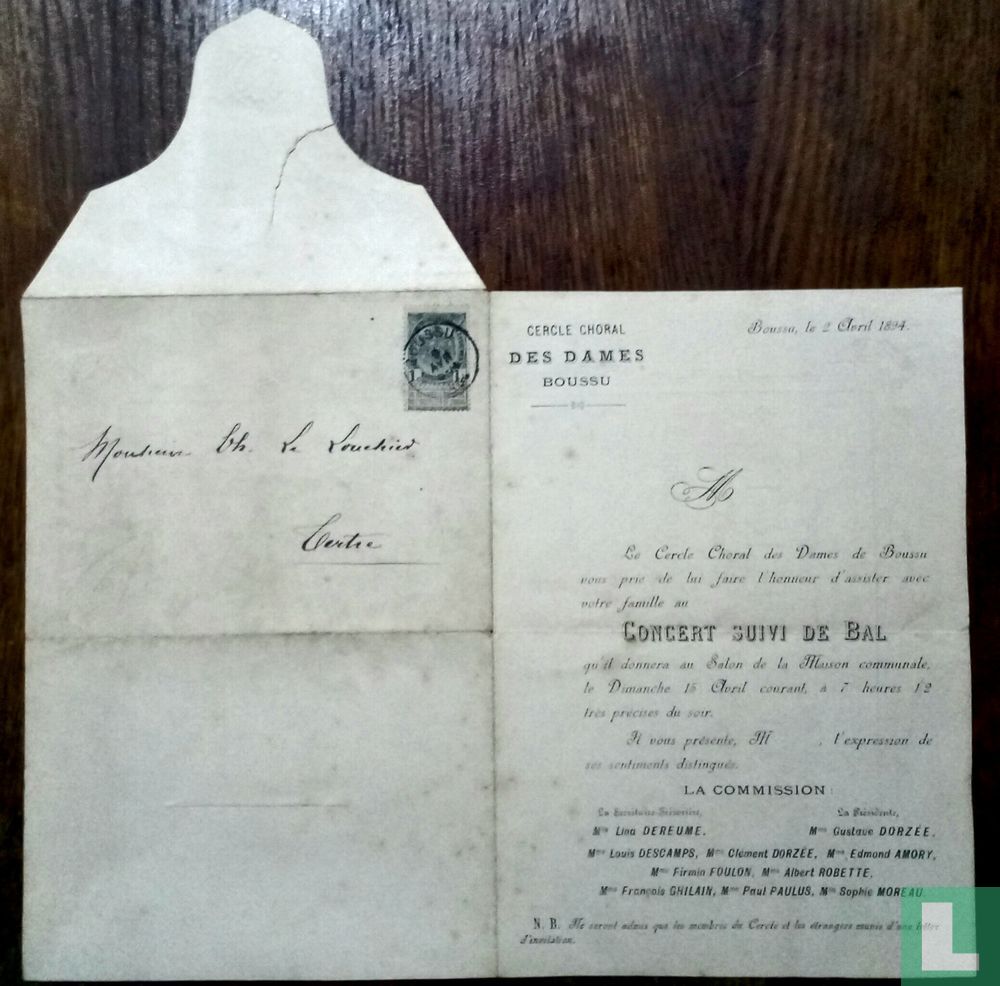 BOUSSU
AVR
1 1
Monsieur Ch. Le Louchier
Tertre
CERCLE CHORAL
DES DAMES
BOUSSU
Boussu, le 2 Avril 1894.
M
Le Cercle Choral des Dames de Boussu
vous prie de lui faire l'honneur d'assister avec
votre famille au
CONCERT SUIVI DE BAL
qu'il donnera au Salon de la Maison communale,
le Dimanche 15 Avril courant, à 7 heures 1/2
très précises du soir.
Il vous présente, M , l'expression de
ses sentiments distingués.
LA COMMISSION:
La Secrétaire-Trésorière, La Présidente,
Mlle Lina DEREUME. Mme Gustave DORZÉE.
Mme Louis DESCAMPS, Mme Clément DORZÉE, Mme Edmond AMORY,
Mme Firmin FOULON, Mme Albert ROBETTE,
Mme François GHILAIN, Mme Paul PAULUS, Mme Sophie MOREAU.
N. B. Ne seront admis que les membres du Cercle et les étrangers munis d'une lettre
d'invitation.
L